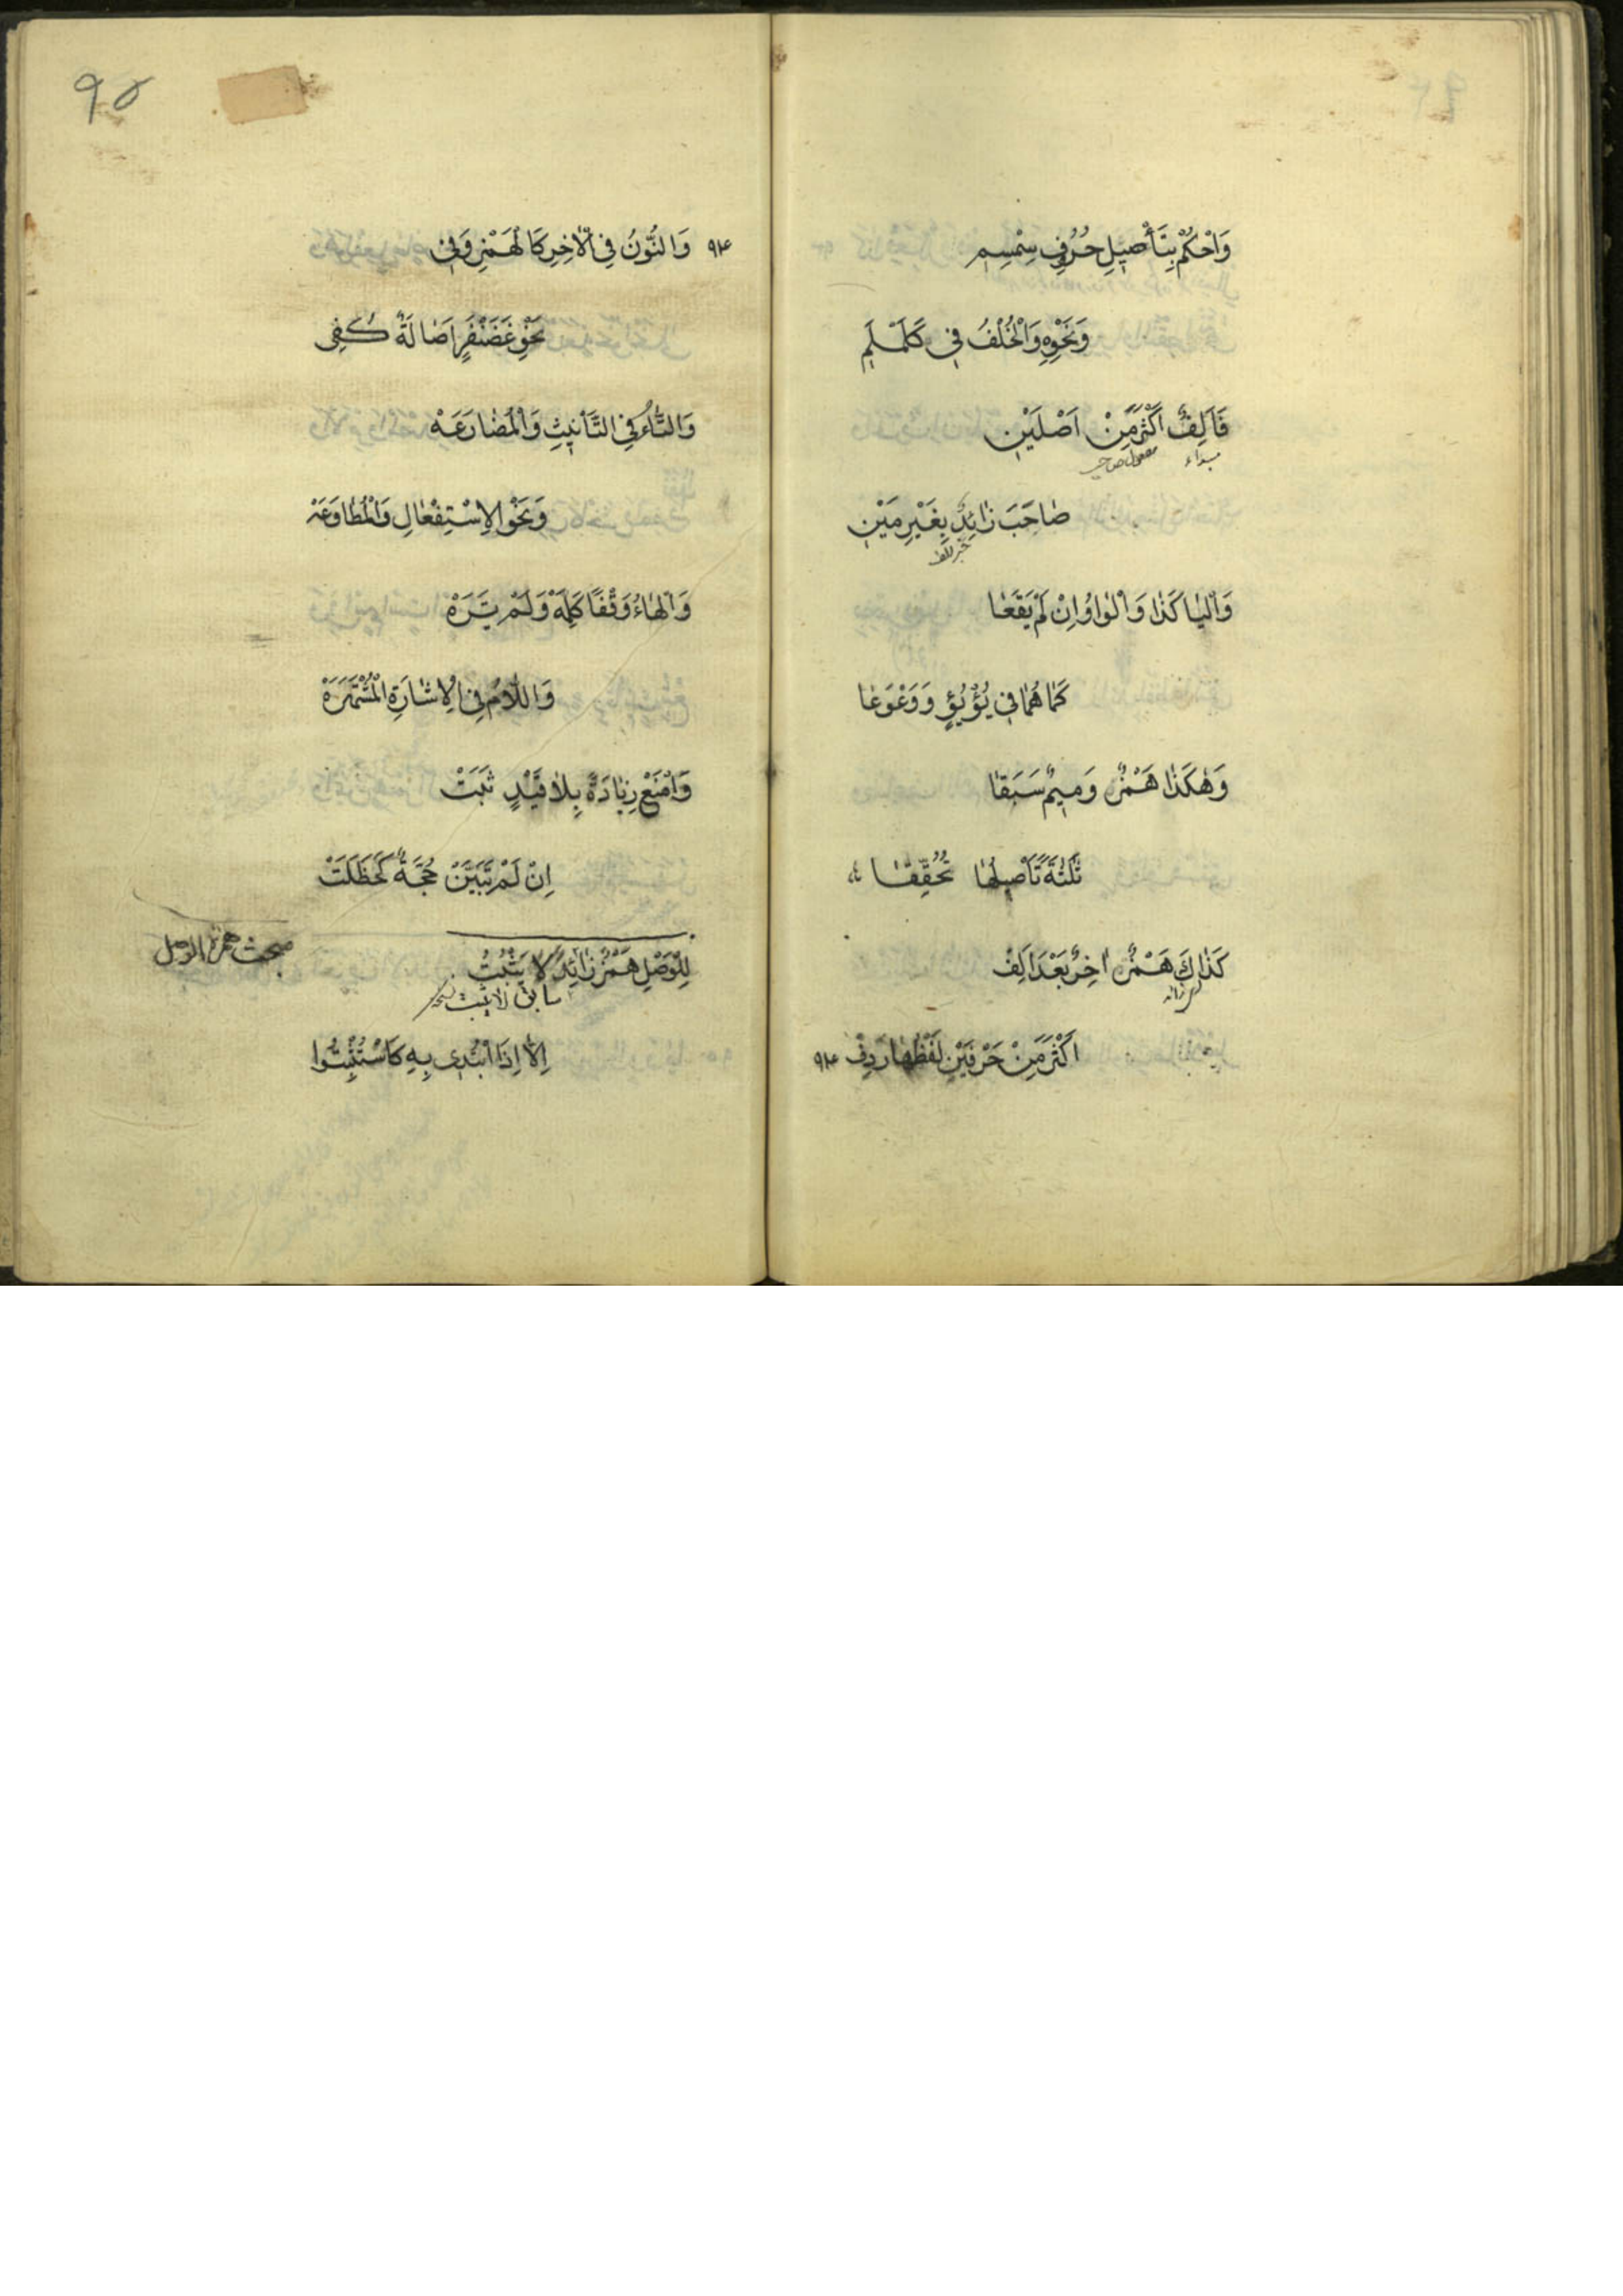 وَاحْكُمْ بِتَأْصِيلِ حُرُوفِ سِمْسِمِ
وَنَحْوِهِ وَالْخُلْفُ فِي كَلَمْلَمِ
فَاَلِفٌ اَكْثَرَ مِنْ اَصْلَيْنِ
مبتداء مفعول صاحب
صَاحَبَ زَائِدٌ بِغَيْرِ مَيْنِ
خبر الف
وَالْيَا كَذَا وَالْوَاوُ اِنْ لَمْ يَقَعَا
كَمَا هُمَا فِي يُؤْيُؤٍ وَوَعْوَعَا
وَهٰكَذَا هَمْزٌ وَمِيمٌ سَبَقَا
ثَلٰثَةً تَأْصِيلُهَا تُحُقِّقَا
كَذَاكَ هَمْزٌ اٰخِرٌ بَعْدَ اَلِفْ
اَكْثَرَ مِنْ حَرْفَيْنِ لَفْظُهَا رَدِفْ ٩٤
٩٥
٩٤ وَالنُّونُ فِي الْاٰخِرِ كَالْهَمْزِ وَفِي
نَحْوِ غَضَنْفَرٍ اَصَالَةً كُفِي
وَالتَّاءُ فِي التَّأْنِيثِ وَالْمُضَارَعَهْ
وَنَحْوِ الْاِسْتِفْعَالِ وَالْمُطَاوَعَهْ
وَالْهَاءُ وَقْفًا كَلِمَهْ وَلَمْ يَرَهْ
وَاللَّامُ فِي الْاِشَارَةِ الْمُشْتَهِرَهْ
وَامْنَعْ زِيَادَةً بِلَا قَيْدٍ ثَبَتْ
اِنْ لَمْ تَبَيَّنْ حُجَّةٌ كَحَظَلَتْ
مبحث همزة الوصل
لِلْوَصْلِ هَمْزٌ زَائِدٌ لَا يَثْبُتُ
سابق لا يثبت
اِلَّا اِذَا ابْتُدِي بِهِ كَاسْتُثْبِتُوا